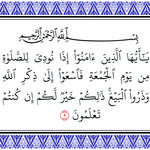 بِسْمِ اللَّهِ الرَّحْمَٰنِ الرَّحِيمِ
يَٰٓأَيُّهَا ٱلَّذِينَ ءَامَنُوٓا۟ إِذَا نُودِىَ لِلصَّلَوٰةِ
مِن يَوْمِ ٱلْجُمُعَةِ فَٱسْعَوْا۟ إِلَىٰ ذِكْرِ ٱللَّهِ
وَذَرُوا۟ ٱلْبَيْعَ ۚ ذَٰلِكُمْ خَيْرٌ لَّكُمْ إِن كُنتُمْ
تَعْلَمُونَ ٩